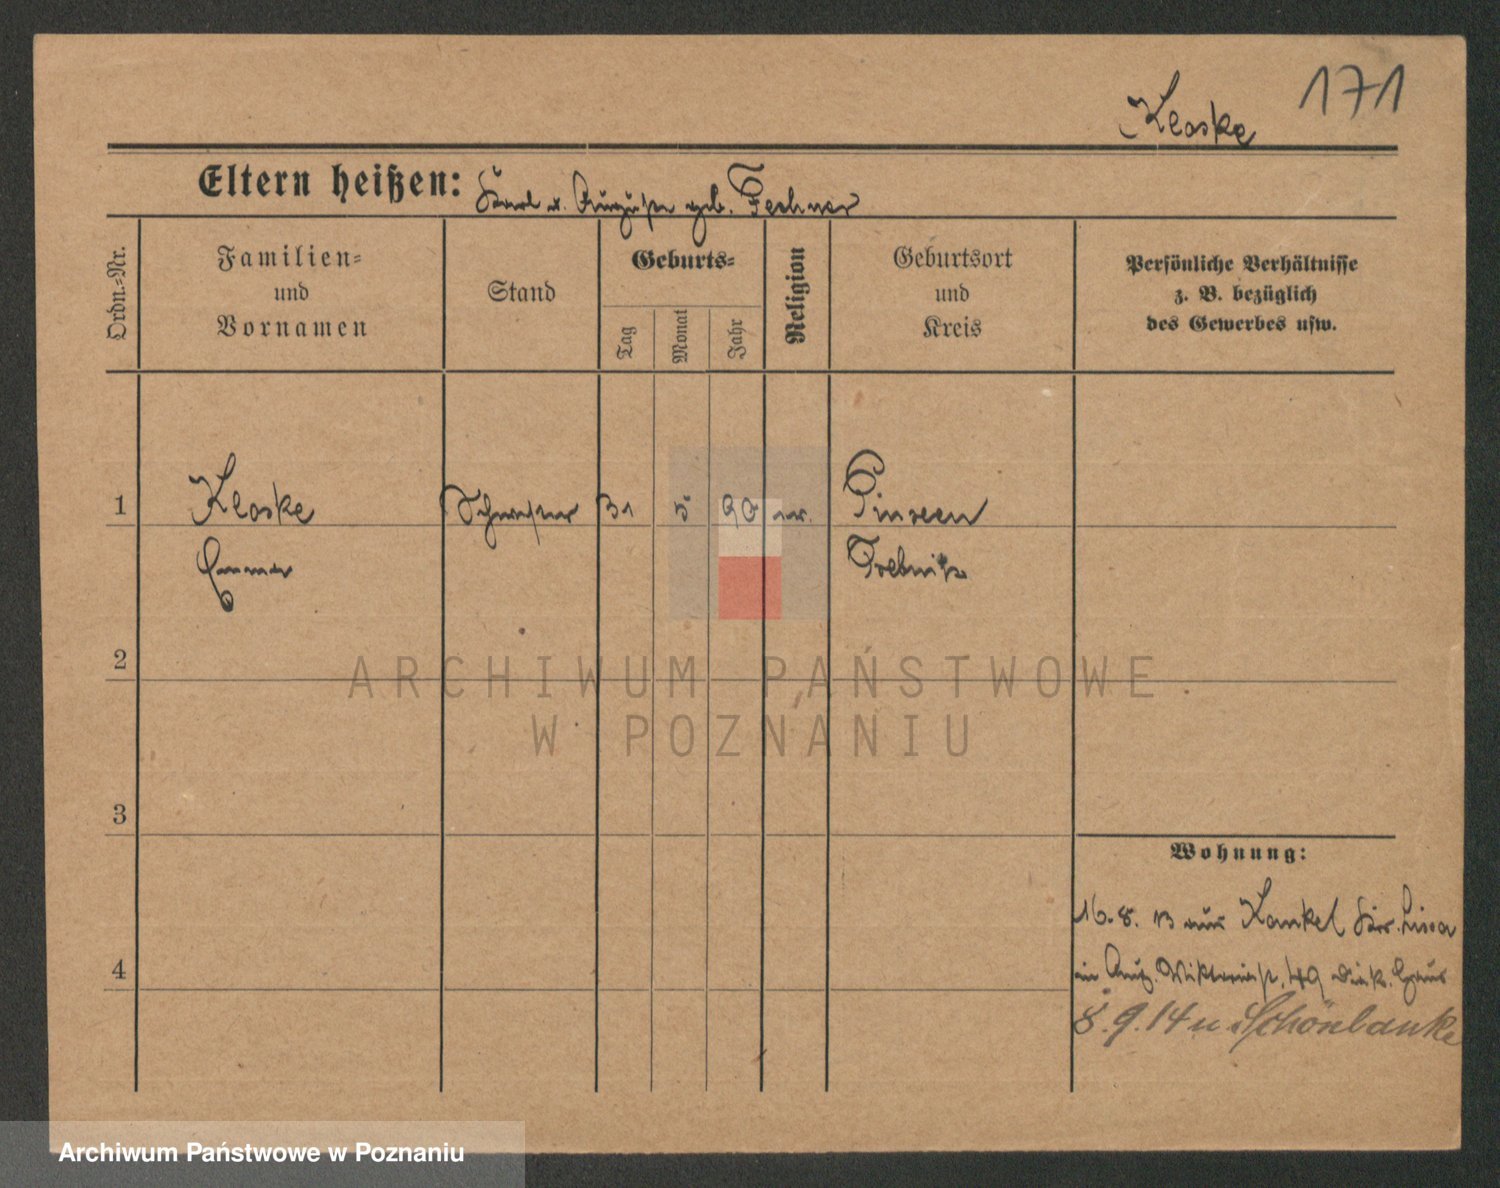 171
Kloske
Eltern heißen: Karl u. Auguste geb. Fechner
Ordn.=Nr.
Familien=
und
Vornamen
Stand
Geburts=
Tag
Monat
Jahr
Religion
Geburtsort
und
Kreis
Persönliche Verhältnisse
z. B. bezüglich
des Gewerbes usw.
1
Kloske
Schwester
31
5
90
ev.
Pinxen
Emma
Trebnitz
2
3
4
Wohnung:
16. 8. 13 aus Kankel Kr. Lissa
in Aug. Viktoriast. 49 Diak. Haus
8. 9. 14 n Schönlanke
ARCHIWUM PAŃSTWOWE
W POZNANIU
Archiwum Państwowe w Poznaniu